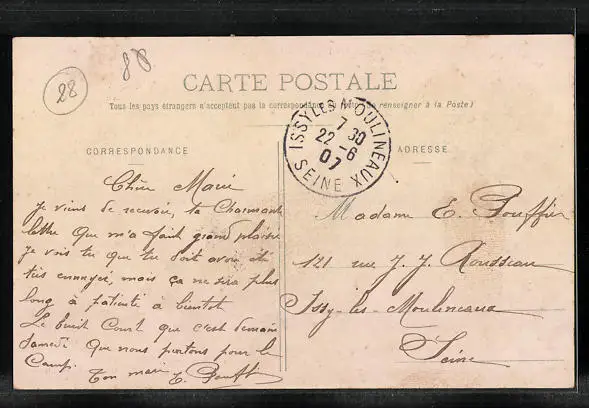 28
80
CARTE POSTALE
Tous les pays étrangers n'acceptent pas la correspondance (se renseigner à la Poste)
ISSY LES MOULINEAUX
7 30
22 - 6
07
SEINE
CORRESPONDANCE
ADRESSE
Chère Marie
Je viens de recevoir, ta Charmante
lettre Que m'a fait grand plaisir
Je vois tu que tu doit avoir été
très ennuyer, mais ça ne sera plus
long à patienté à bientot
Le bruit Court que c'est demain
Samedi Que nous partons pour le
Camp.
Ton mari E. Pouff
Madame E. Pouffier
121 rue J. J. Rousseau
Issy-les-Moulineaux
Seine